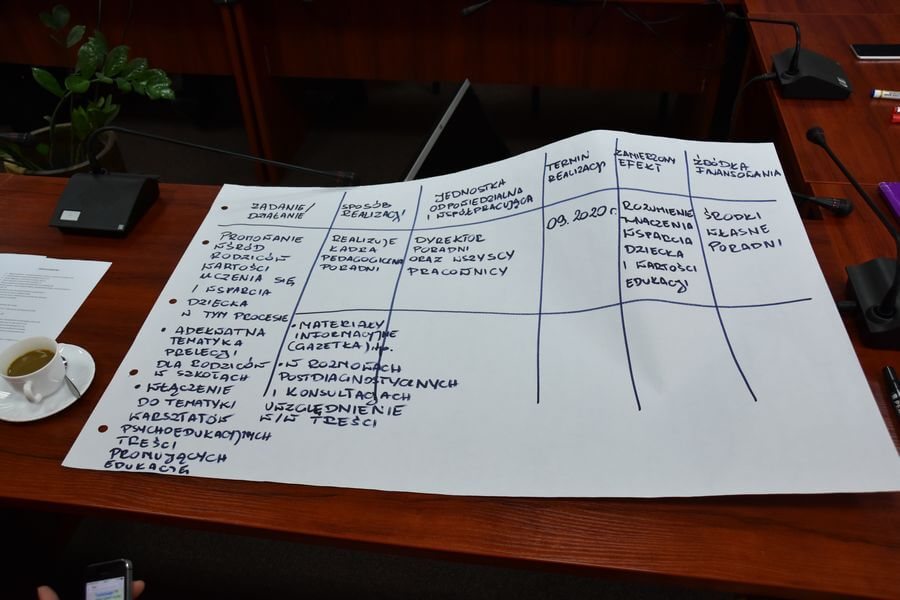 ZADANIE/
DZIAŁANIE
SPOSÓB
REALIZACJI
JEDNOSTKA
ODPOWIEDZIALNA
I WSPÓŁPRACUJĄCA
TERMIN
REALIZACJI
ZAMIERZONY
EFEKT
ŹRÓDŁA
FINANSOWANIA
• PROMOWANIE
WŚRÓD
RODZICÓW
WARTOŚCI
UCZENIA SIĘ
I WSPARCIA
DZIECKA
W TYM PROCESIE
• ADEKWATNA
TEMATYKA
PRELEKCJI
DLA RODZICÓW
W SZKOŁACH
• WŁĄCZENIE
DO TEMATYKI
WARSZTATÓW
PSYCHOEDUKACYJNYCH
TREŚCI
PROMUJĄCYCH
EDUKACJĘ
REALIZUJE
KADRA
PEDAGOGICZNA
PORADNI
• MATERIAŁY
INFORMACYJNE
(GAZETKA) itp.
• W ROZMOWACH
POSTDIAGNOSTYCZNYCH
I KONSULTACJACH
UWZGLĘDNIENIE
W/W TREŚCI
DYREKTOR
PORADNI
ORAZ WSZYSCY
PRACOWNICY
09.2020r.
ROZUMIENIE
ZNACZENIA
WSPARCIA
DZIECKA
I WARTOŚCI
EDUKACJI
ŚRODKI
WŁASNE
PORADNI